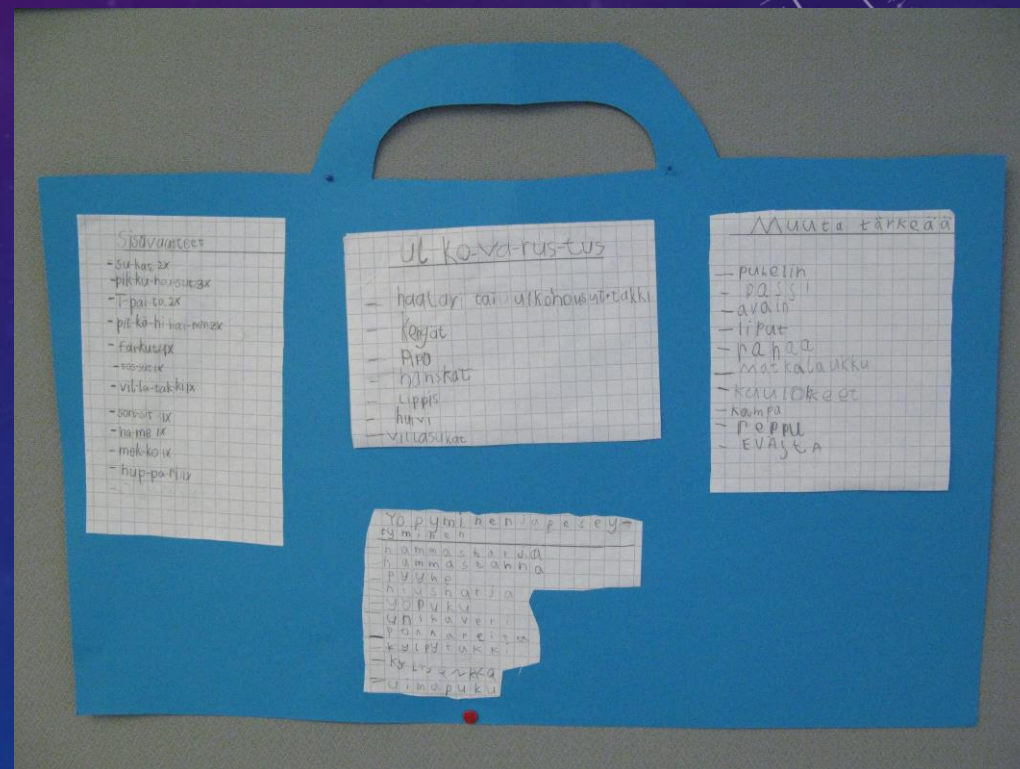 Sisävaatteet
- su-kat 2x
- pik-ku-housut 3x
- T-pai-ta 2x
- pit-kä-hi-hai-nen 2x
- farkut 1x
1x
- vil-la-tak-ki 1x
- sort-sit 1x
- ha-me 1x
- mek-ko 1x
- hup-pa-ri 1x
-
Ul-ko-va-rus-tus
- haalari tai ulkohousut+takki
- Kengät
- Pipo
- hanskat
- Lippis
- huivi
- villasukat
Muuta tärkeää
- puhelin
- passi
- avain
- liput
- rahaa
- matkalaukku
- kuulokeet
- kampa
- reppu
- EVÄStA
Yöpyminen ja peseyty-
tyminen
- hammasharja
- hammastahna
- pyyhe
- hiusharja
- yöpuku
- unikaveri
- ponnareita
- kylpytakki
-
- uimapuku